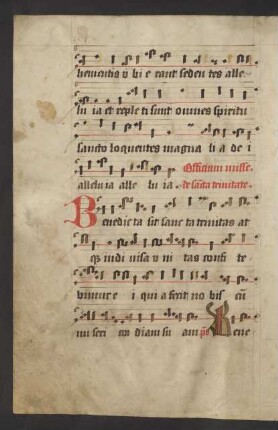 hementis v bi e rant seden tes alle
lu ia et reple ti sunt omnes spiritu
sancto loquentes magna li a de i
alleluia alle lu ia. Officium misse
de sãcta trinitate.
Benedic ta sit sanc ta trinitas at
qz indi uisa v ni tas confi te
e i qui a fecit no bis cũ
mi seri cor diam su am ps Bene